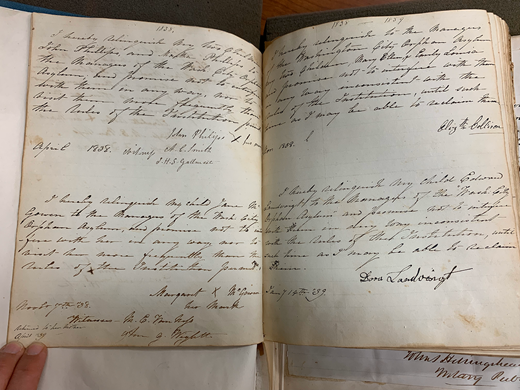 1838,
I hereby relinquish my two Children
John Phillips and Phillips to
the Managers of the Wash City Orphan
Asylum, and promise not to interfere
with them in any way, nor to
visit them more frequently than
the Rules of the Institution permit
John Philips X his
April 1838. Witness
I hereby relinquish my child Jane Mc
Gowen to the Managers of the Wash City
Orphan Asylum, and promise not to inter
fere with her in any way nor to
visit her more frequently than the
rules of the Institution permit.
Margaret X McGowen
her mark
Novr 7th 38.
Witness M. C. Van Ness
1838 — 1839
I hereby relinquish to the Managers
of the Washington City Orphan Asylum
my two Children, Mary Ellen, Emily Louisa
and promise not to interfere with them
in any way inconsistent with the
rules of the Institution, until such
time as I may be able to reclaim them
Elizth Collison
1838.
I hereby relinquish my Child Edward
Landvoigt to the Managers of the Wash City
Orphan Asylum and promise not to interfere
with them in any way inconsistent
with the rules of the Institution, until
such time as I may be able to reclaim
them.
Dora Landvoigt
Jany 14th 39.
John S Hollingshead
Notary Pub